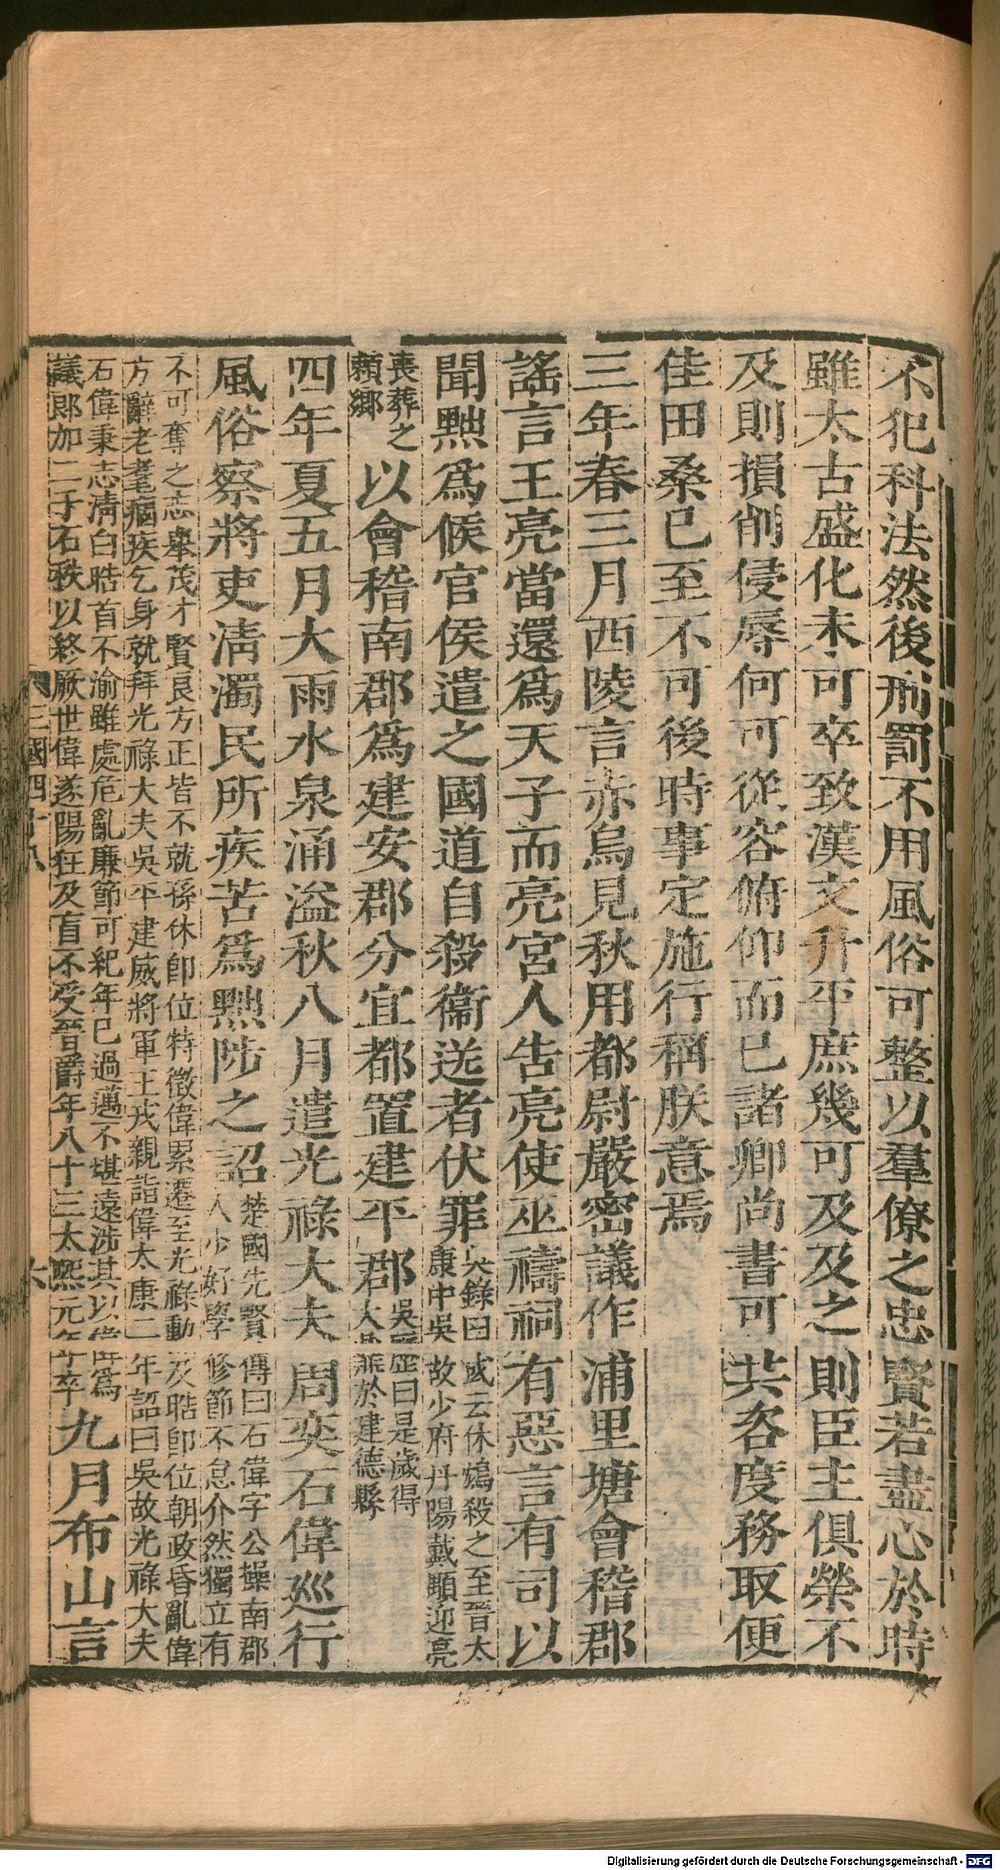 不犯科法然後刑罰不用風俗可整以羣僚之忠賢若盡心於時
雖太古盛化未可卒致漢文升平庶幾可及及之則臣主俱榮不
及則損削侵辱何可從容俯仰而已諸卿尚書可共咨度務取便
佳田桑已至不可後時事定施行稱朕意焉
三年春三月西陵言赤烏見秋用都尉嚴密議作浦里塘會稽郡
謠言王亮當還爲天子而亮宮人告亮使巫禱祠有惡言有司以
聞黜爲候官侯遣之國道自殺衞送者伏罪
吳錄曰或云休鴆殺之至晉太
康中吳故少府丹陽戴顒迎亮
喪葬之
賴鄉
以會稽南郡爲建安郡分宜都置建平郡
吳歷曰是歲得
大鼎於建德縣
四年夏五月大雨水泉涌溢秋八月遣光祿大夫周奕石偉巡行
風俗察將吏淸濁民所疾苦爲黜陟之詔
楚國先賢傳曰石偉字公操南郡
人少好學修節不怠介然獨立有
不可奪之志舉茂才賢良方正皆不就孫休卽位特徵偉累遷至光祿勳及晧卽位朝政昏亂偉
方辭老耄痼疾乞身就拜光祿大夫吳平建威將軍王戎親詣偉太康二年詔曰吳故光祿大夫
石偉秉志淸白晧首不渝雖處危亂廉節可紀年已過邁不堪遠涉其以偉爲
議郞加二千石秩以終厥世偉遂陽狂及盲不受晉爵年八十三太熙元年卒
九月布山言
三國四十八
六
Digitalisierung gefördert durch die Deutsche Forschungsgemeinschaft - DFG